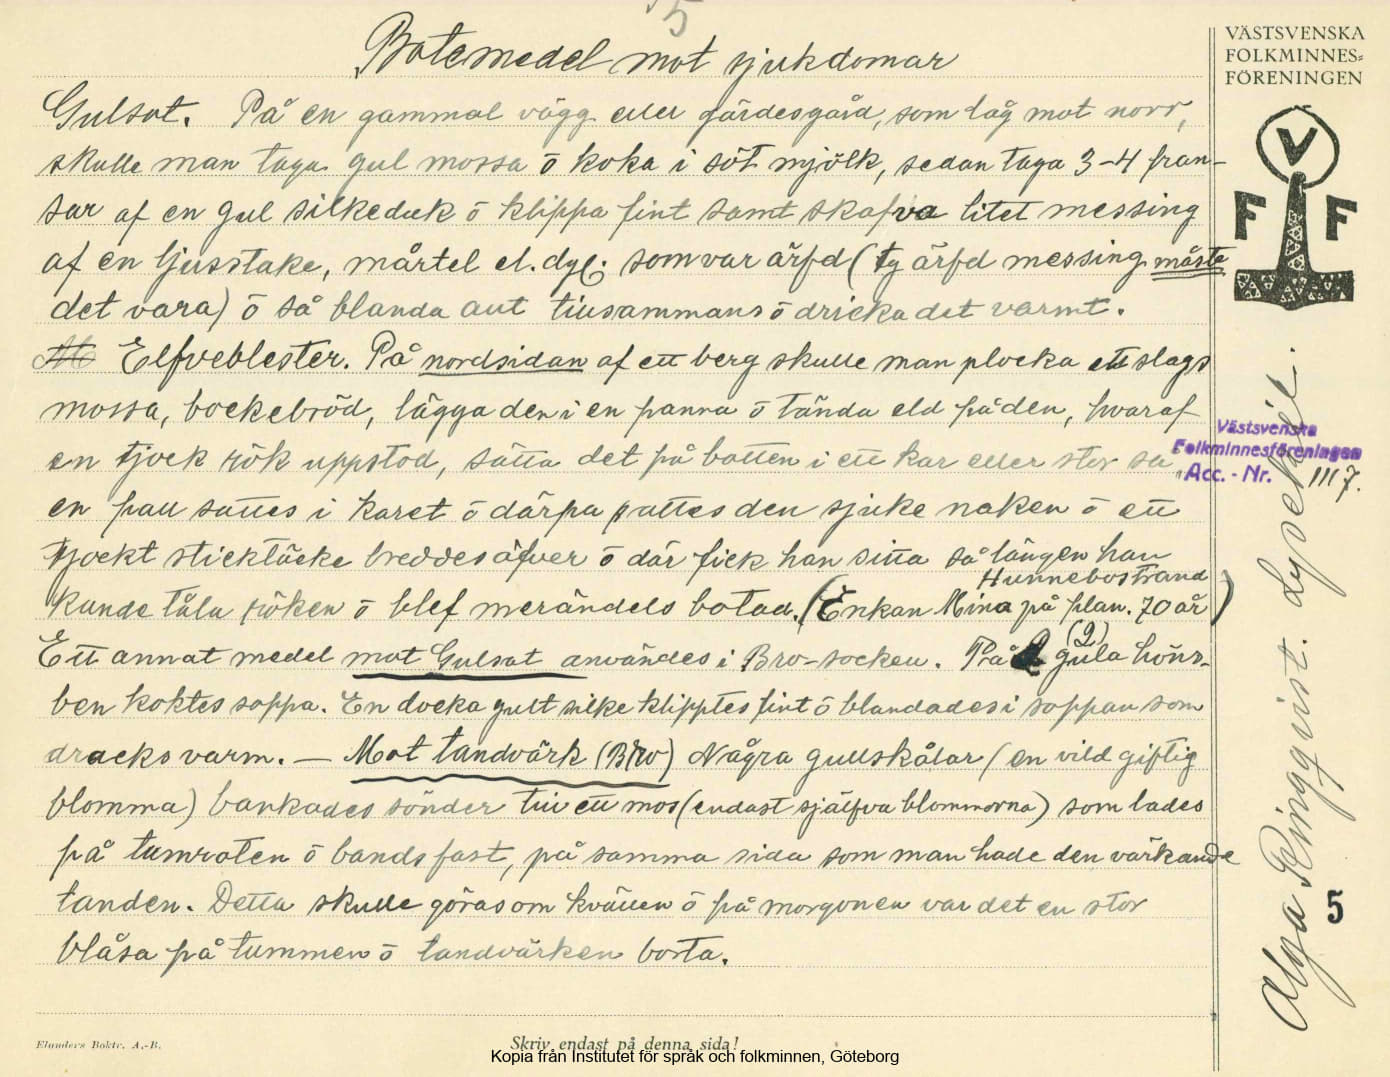 5
Botemedel mot sjukdomar
Gulsot. På en gammal vägg eller gärdesgård, som låg mot norr,
skulle man taga gul mossa ö koka i söt mjölk, sedan taga 3-4 fran-
sar af en gul silkeduk ö klippa fint samt skafva litet messing
af en ljusstake, mårtel el. dyl. som var ärfd (ty ärfd messing måste
det vara) ö så blanda allt tillsammans ö dricka det varmt.
Elfveblester. På nordsidan af ett berg skulle man plocka ett slags
mossa, bockebröd, lägga den i en panna ö tända eld på den, hvaraf
en tjock rök uppstod, sätta det på botten i ett kar eller stor så
en pall sattes i karet ö därpå sattes den sjuke naken ö ett
tjockt sticktäcke breddes äfver ö där fick han sitta så längen han
Hunnebostrand
kunde tåla röken ö blef merändels botad. (Enkan Mina på plan. 70 år)
Ett annat medel mot Gulsot användes i Bro-socken. På (2) gula höns-
ben koktes soppa. En docka gult silke klipptes fint ö blandades i soppan som
dracks varm. — Mot tandvärk (Bro) Några gullskålar (en vild giftig
blomma) bankades sönder till ett mos (endast själfva blommorna) som lades
på tumroten ö bands fast, på samma sida som man hade den värkande
tanden. Detta skulle göras om kvällen ö på morgonen var det en stor
blåsa på tummen ö tandvärken borta.
Elanders Boktr. A.-B.
Skriv endast på denna sida!
Kopia från Institutet för språk och folkminnen, Göteborg
VÄSTSVENSKA
FOLKMINNES=
FÖRENINGEN
V
F F
Västsvenska
Folkminnesföreningen
Acc. - Nr. 1117.
Alga Ringqvist. Lysekil.
5